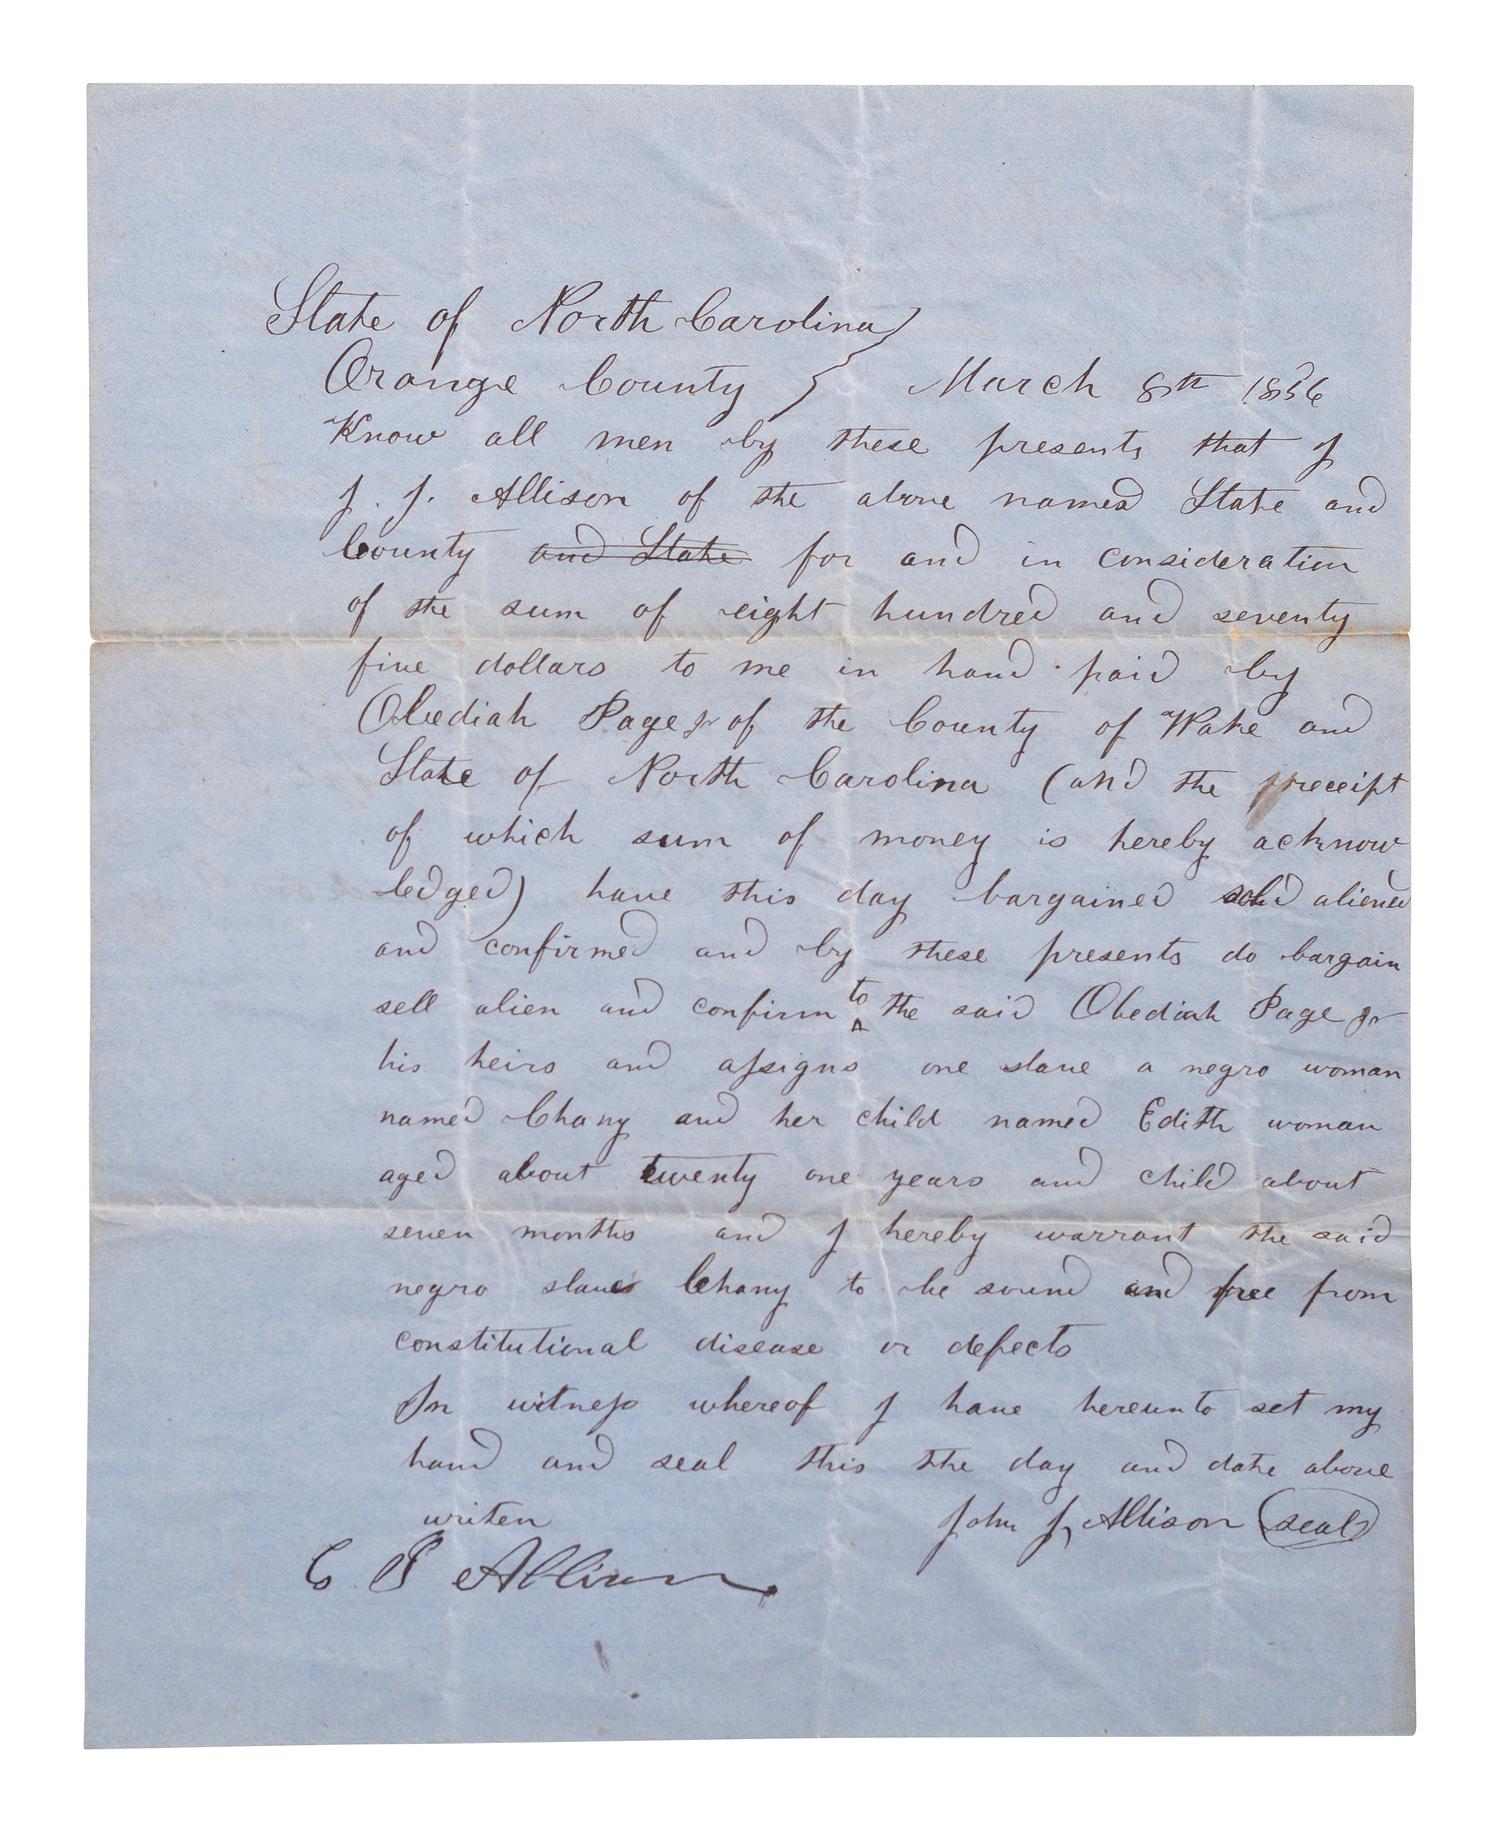 State of North Carolina
Orange County } March 8th 1856
Know all men by these presents that I
J. J. Allison of the above named State and
County and State for and in consideration
of the sum of eight hundred and seventy
five dollars to me in hand paid by
Obediah Page Jr of the County of Wake and
State of North Carolina (and the receipt
of which sum of money is hereby acknow
ledged) have this day bargained sold aliened
and confirmed and by these presents do bargain
sell alien and confirm to the said Obediah Page Jr
his heirs and assigns one slave a negro woman
named Chany and her child named Edith woman
aged about twenty one years and child about
seven months and I hereby warrant the said
negro slaves Chany to be sound and free from
constitutional disease or defects
In witness whereof I have hereunto set my
hand and seal this the day and date above
writen John J, Allison (seal)
C P Allison